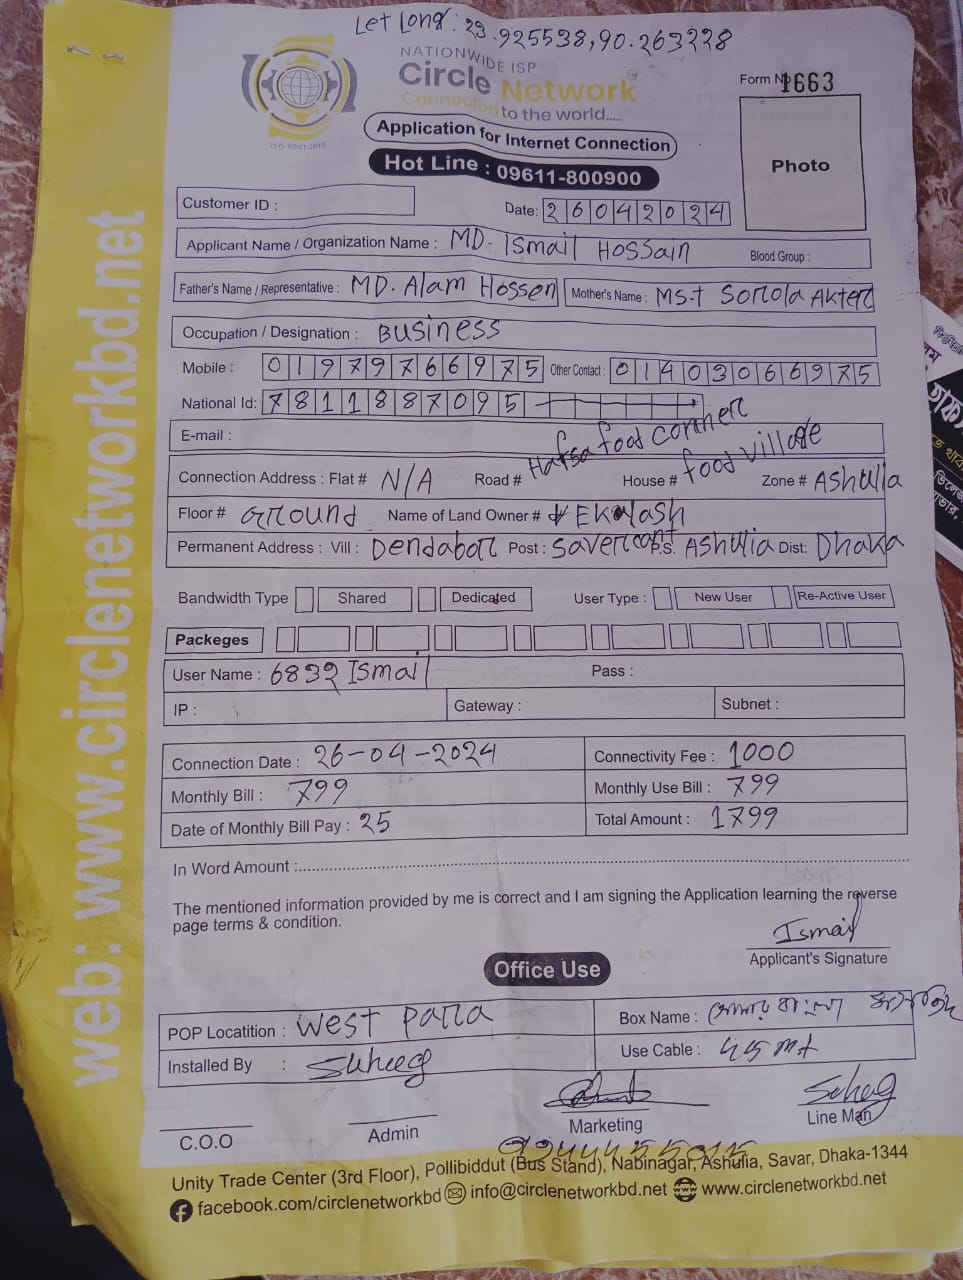 Let Long: 23.925538,90.263228
NATIONWIDE ISP
Circle Network
Connected to the world.....
ISO 9001:2015
Form No 1663
Application for Internet Connection
Hot Line : 09611-800900
Photo
Customer ID :
Date: 26042024
Applicant Name / Organization Name : MD. Ismail Hossain Blood Group :
Father's Name / Representative : MD. Alam Hossen Mother's Name : MS.T Sorola Akter
Occupation / Designation : Business
Mobile : 01979766975 Other Contact : 01403066975
National Id: 7811887095
E-mail :
Connection Address : Flat # N/A Road # Hafsa food corner House # food village Zone # Ashulia
Floor # Ground Name of Land Owner #
Permanent Address : Vill : Dendabor Post : Saver cant P.S. Ashulia Dist: Dhaka
Bandwidth Type Shared Dedicated User Type : New User Re-Active User
Packeges
User Name : 6832 Ismail Pass :
IP : Gateway : Subnet :
Connection Date : 26-04-2024 Connectivity Fee : 1000
Monthly Bill : 799 Monthly Use Bill : 799
Date of Monthly Bill Pay : 25 Total Amount : 1799
In Word Amount :
The mentioned information provided by me is correct and I am signing the Application learning the reverse
page terms & condition.
Ismail
Applicant's Signature
Office Use
POP Locatition : West Para Box Name :
Installed By : Suheeg Use Cable :
C.O.O Admin Marketing Line Man
Unity Trade Center (3rd Floor), Pollibiddut (Bus Stand), Nabinagar, Ashulia, Savar, Dhaka-1344
facebook.com/circlenetworkbd info@circlenetworkbd.net www.circlenetworkbd.net
web: www.circlenetworkbd.net